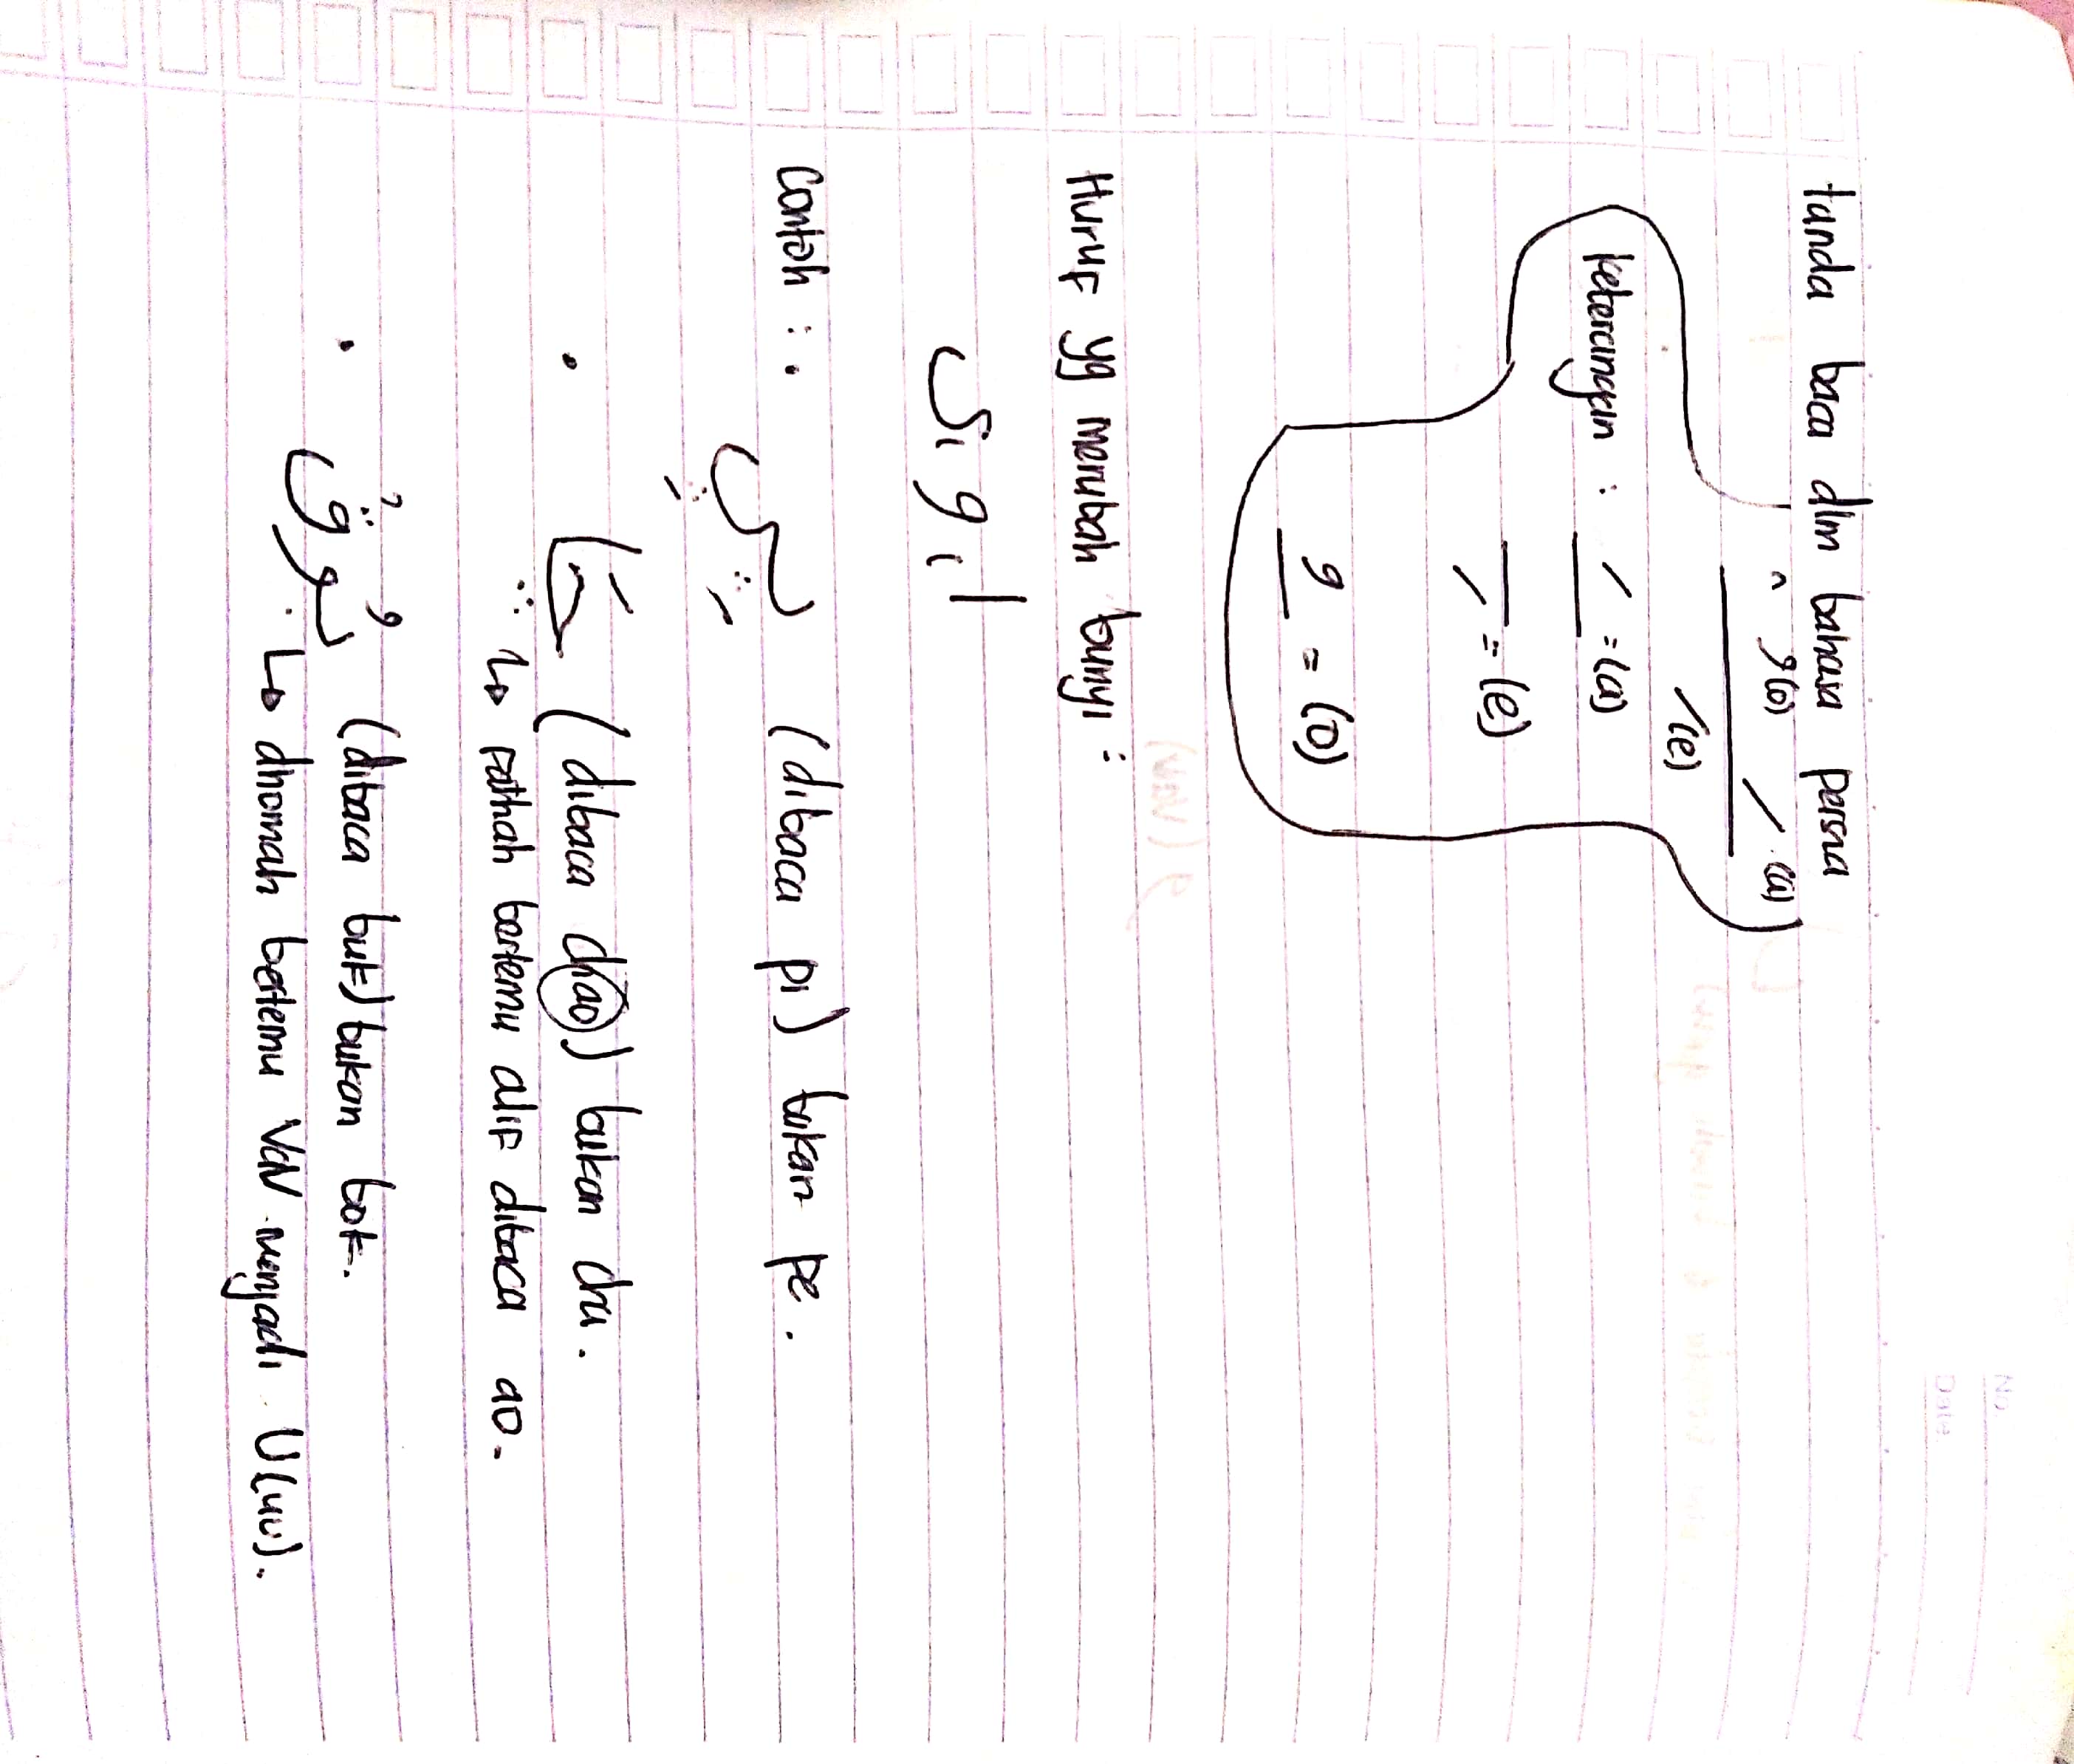 No.
Date.
tanda baca dlm bahasa persia
ُ (o) َ (a)
ِ (e)
keterangan : َ = (a)
ِ = (e)
ُ = (o)
Huruf yg merubah bunyi :
ا , و , ی
Contoh : • (dibaca pi) bukan pe.
• (dibaca chao) bukan cha.
↳ Fathah bertemu alif dibaca ao.
• (dibaca but) bukan bot.
↳ dhomah bertemu vav menjadi U(uu).